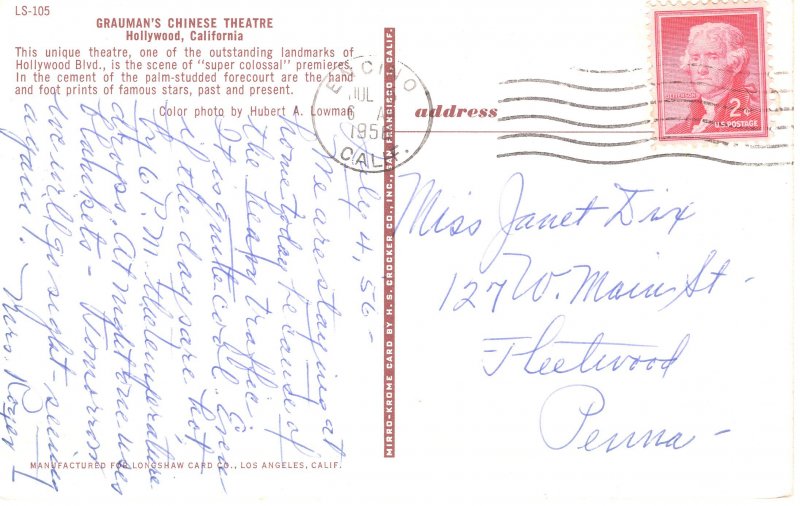 LS-105
GRAUMAN'S CHINESE THEATRE
Hollywood, California
This unique theatre, one of the outstanding landmarks of
Hollywood Blvd., is the scene of "super colossal" premieres.
In the cement of the palm-studded forecourt are the hand
and foot prints of famous stars, past and present.
Color photo by Hubert A. Lowman
July 4, 56-
We are staying at
home today because of
the heavy traffic.
It is quite cool. Even
if the days are hot,
by 6 P.M. the temperature
drops. At night one uses
blankets - Tomorrow
we will go sight-seeing
again.
Mrs. Royer
MANUFACTURED FOR LONGSHAW CARD CO., LOS ANGELES, CALIF.
MIRRO-KROME CARD BY H. S. CROCKER CO., INC., SAN FRANCISCO 1, CALIF.
ENCINO
JUL
6
1956
CALIF.
address
2¢
U.S. POSTAGE
Miss Janet Dix
127 W. Main St-
Fleetwood
Penna-